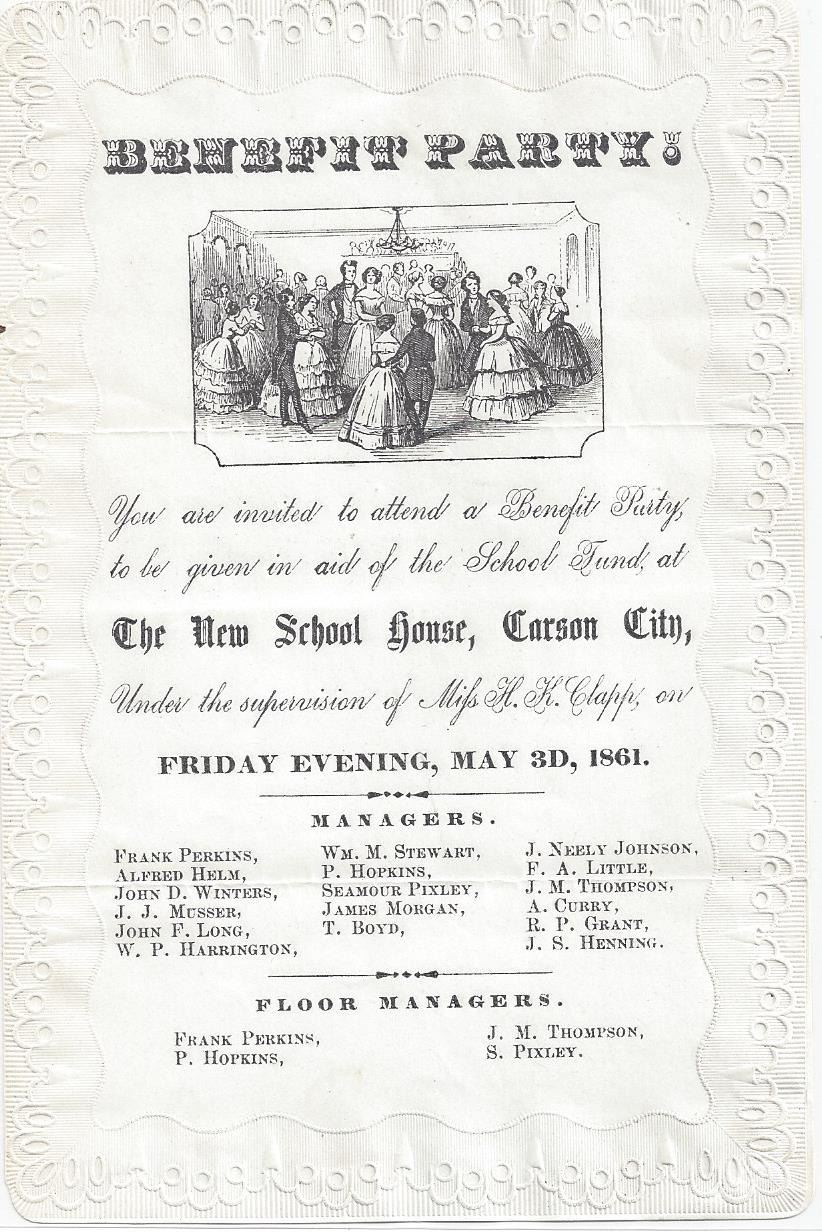 BENEFIT PARTY!
You are invited to attend a Benefit Party,
to be given in aid of the School Fund, at
The New School House, Carson City,
Under the supervision of Miſs H. K. Clapp, on
FRIDAY EVENING, MAY 3D, 1861.
MANAGERS.
FRANK PERKINS,
ALFRED HELM,
JOHN D. WINTERS,
J. J. MUSSER,
JOHN F. LONG,
W. P. HARRINGTON,
WM. M. STEWART,
P. HOPKINS,
SEAMOUR PIXLEY,
JAMES MORGAN,
T. BOYD,
J. NEELY JOHNSON,
F. A. LITTLE,
J. M. THOMPSON,
A. CURRY,
R. P. GRANT,
J. S. HENNING.
FLOOR MANAGERS.
FRANK PERKINS,
P. HOPKINS,
J. M. THOMPSON,
S. PIXLEY.